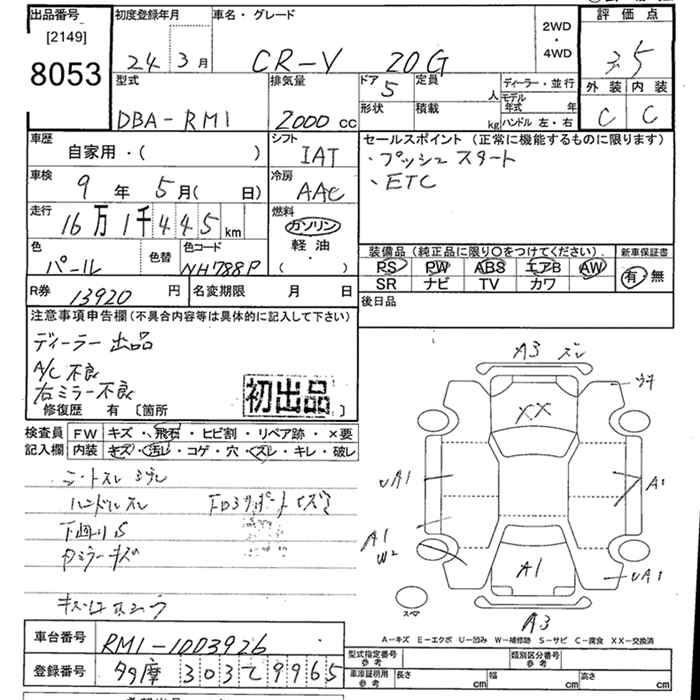 出品番号
[2149]
8053
初度登録年月
24 3月
車名・グレード
CR-V 20G
2WD
・
4WD
評価点
3.5
外装 内装
C C
型式
DBA-RM1
排気量
2000cc
ドア 5
定員 人
形状
積載 kg
ディーラー・並行
モデル年式 年
ハンドル 左・右
車歴
自家用・( )
シフト
IAT
車検
9年 5月( 日)
冷房
AAC
走行
16万1千445km
燃料
ガソリン
軽油
( ・ )
色
パール
色替
色コード
NH788P
R券 13920円
名変期限 月 日
セールスポイント(正常に機能するものに限ります)
・プッシュスタート
・ETC
装備品(純正品に限り〇をつけてください)
PS PW ABS エアB AW
SR ナビ TV カワ
新車保証書
有・無
後日品
注意事項申告欄(不具合内容等は具体的に記入して下さい)
ディーラー出品
A/C不良
右ミラー不良
修復歴 有 〔箇所 〕
初出品
検査員記入欄
FW キズ・飛石・ヒビ割・リペア跡・×要
内装 キズ・汚レ・コゲ・穴・スレ・キレ・破レ
シートスレ シワレ
ハンドルスレ
下廻りS
ミラーキズ
A3 スレ
XX
UA1
A1
A1
W2
A1
UA1
スペア
A3
A-キズ E-エクボ U-凹み W-補修跡 S-サビ C-腐食 XX-交換済
車台番号
RM1-1003926
登録番号
多摩 303 て 9965
型式指定番号
参考
類別区分番号
参考
車庫証明用
参考
長さ cm
幅 cm
高さ cm